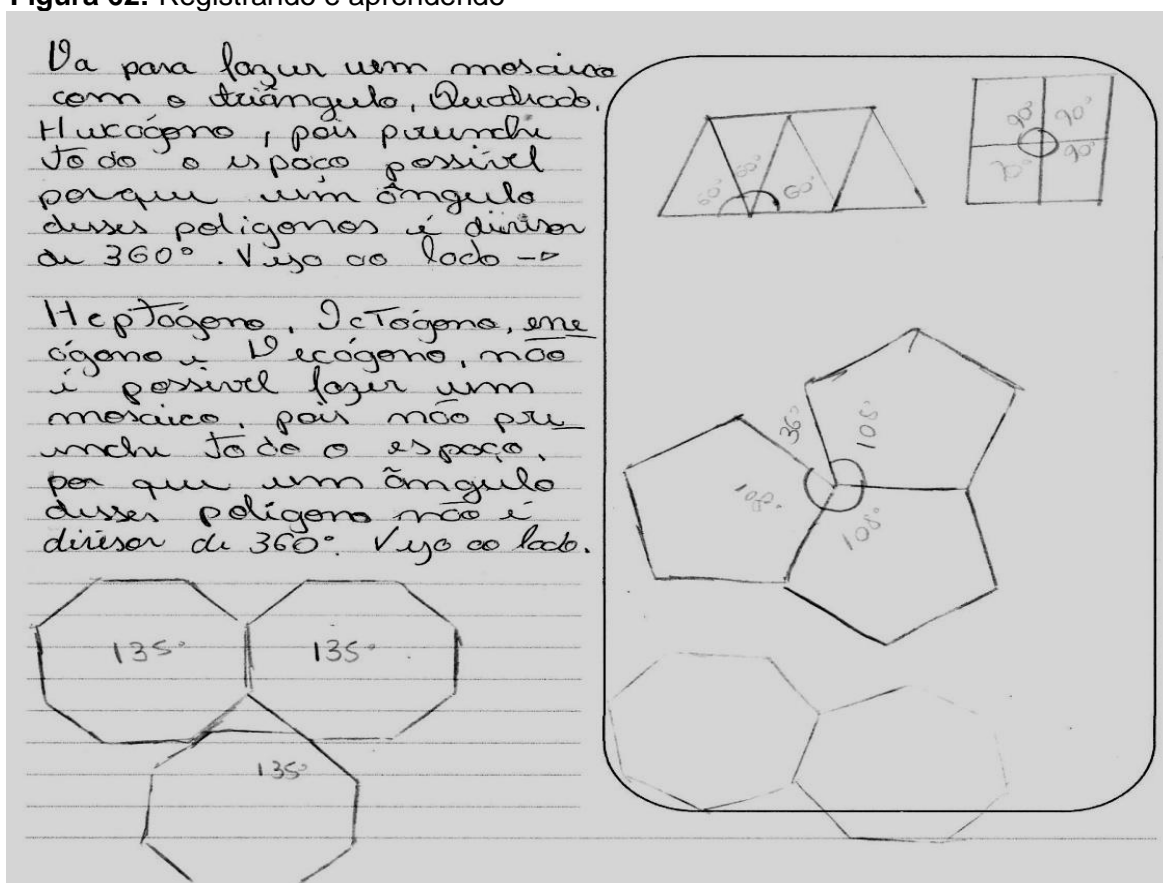 Figura 62: Registrando e aprendendo
Da para fazer uem mosaico
com o triângulo, Quadrado,
Hexágono, pois preenche
todo o espaço possível
porque um ângulo
desses polígonos é divisor
de 360°. Veja ao lado ->
Heptágono, Octógono, ene
ágono e Decágono, não
é possível fazer um
mosaico, pois não pre
enche todo o espaço,
por que um ângulo
desses polígono não é
divisor de 360°. Veja ao lado.
60° 60° 60°
90° 90°
90° 90°
36° 108°
108°
108°
135° 135°
135°